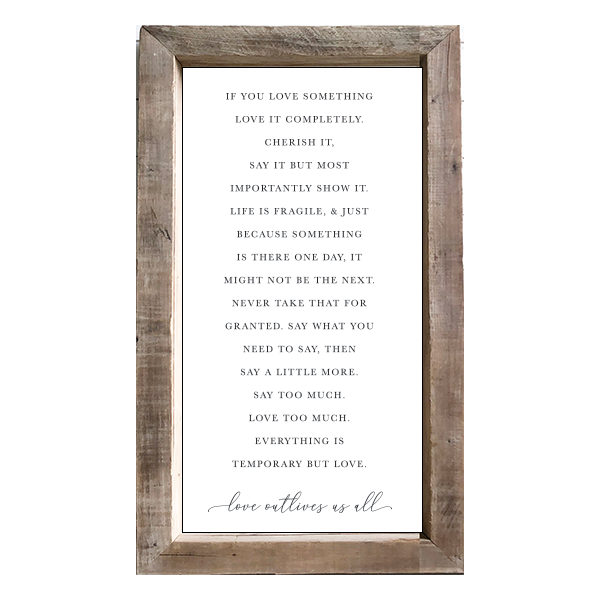 IF YOU LOVE SOMETHING
LOVE IT COMPLETELY.
CHERISH IT,
SAY IT BUT MOST
IMPORTANTLY SHOW IT.
LIFE IS FRAGILE, & JUST
BECAUSE SOMETHING
IS THERE ONE DAY, IT
MIGHT NOT BE THE NEXT.
NEVER TAKE THAT FOR
GRANTED. SAY WHAT YOU
NEED TO SAY, THEN
SAY A LITTLE MORE.
SAY TOO MUCH.
LOVE TOO MUCH.
EVERYTHING IS
TEMPORARY BUT LOVE.
love outlives us all